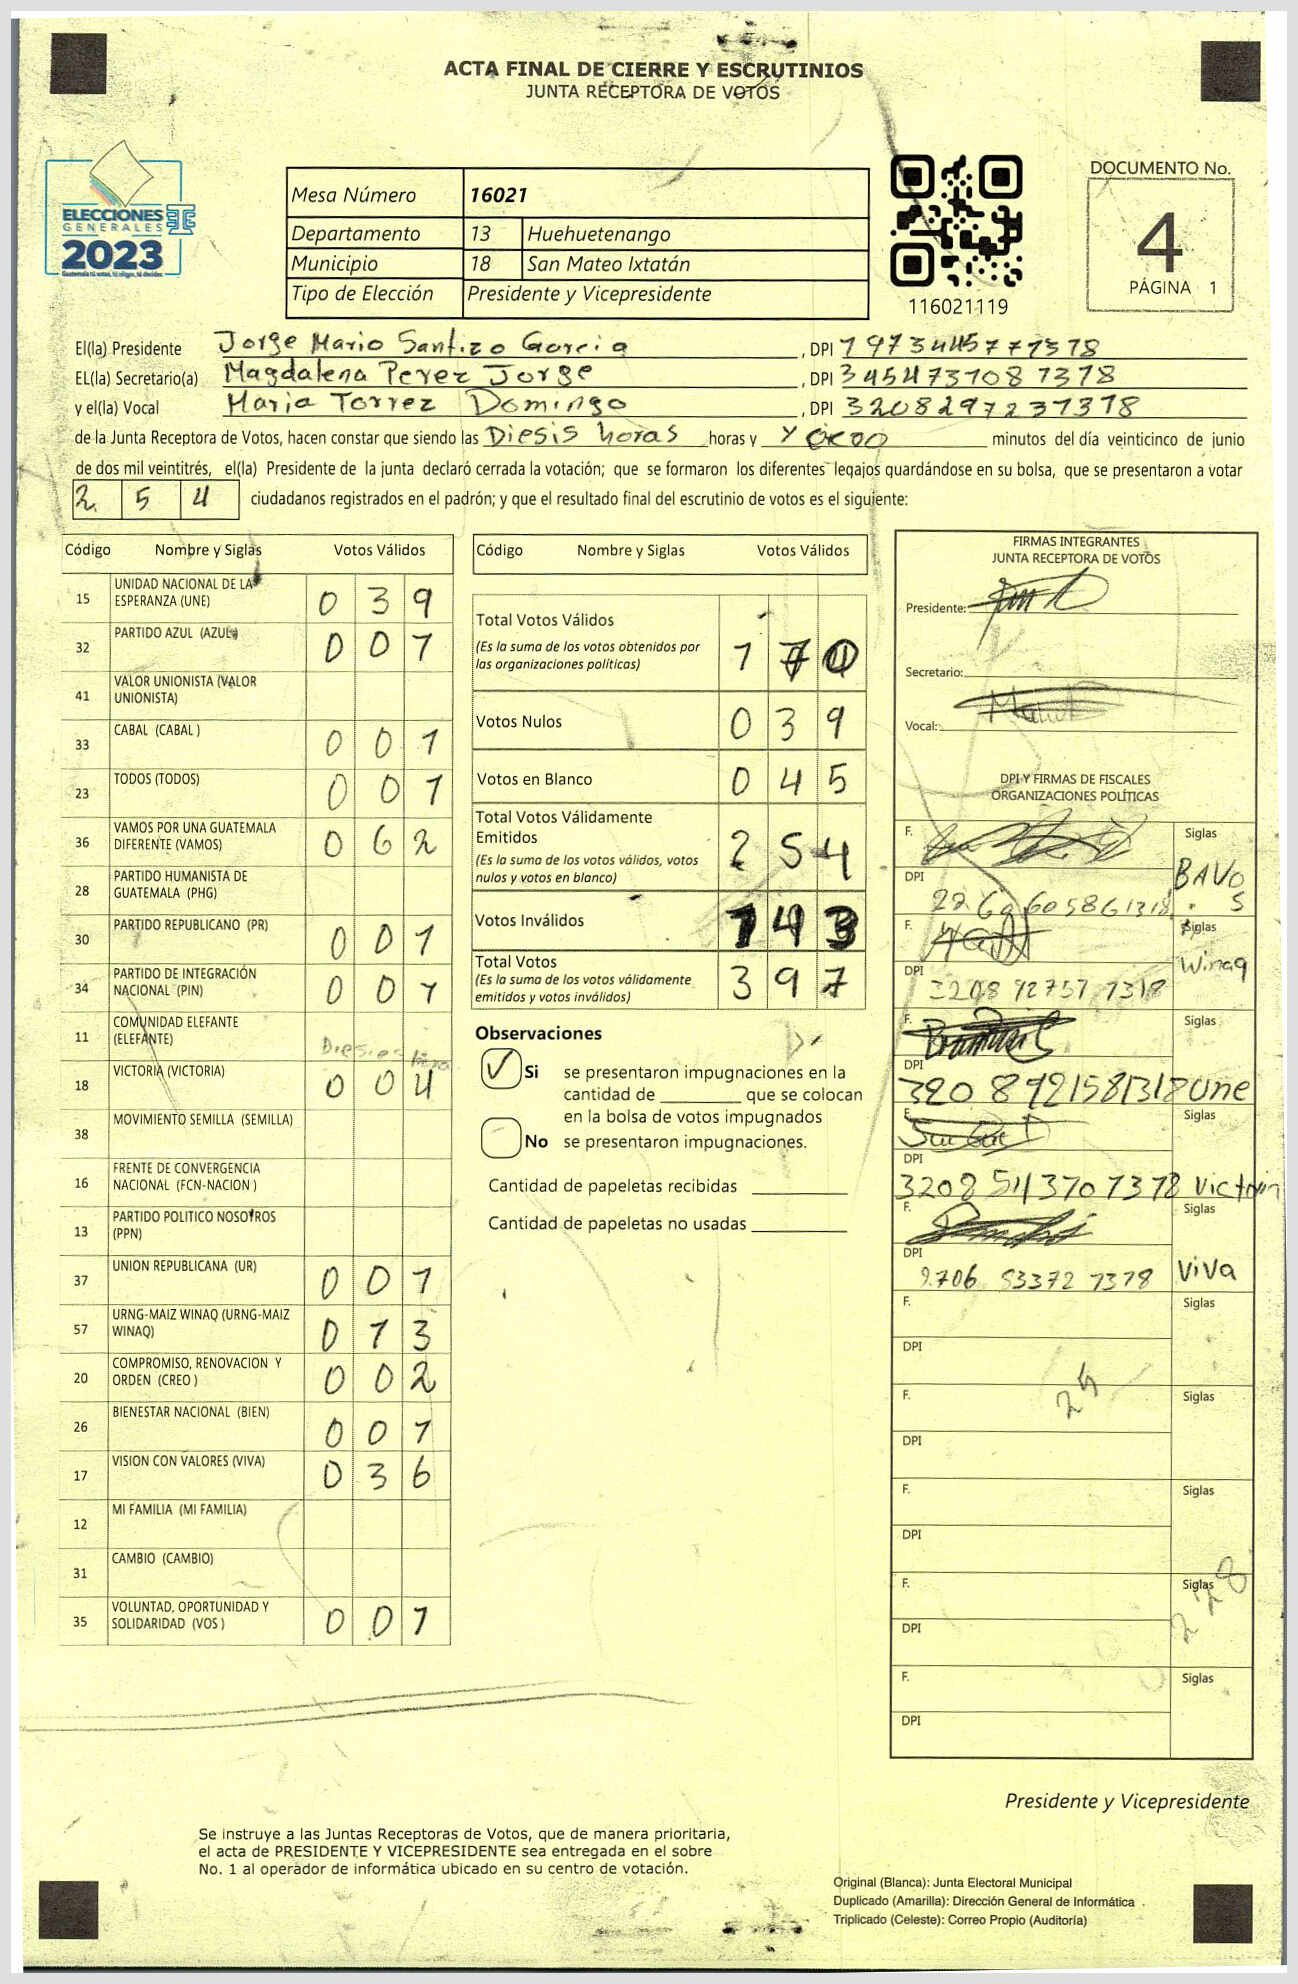 ACTA FINAL DE CIERRE Y ESCRUTINIOS
JUNTA RECEPTORA DE VOTOS
ELECCIONES
GENERALES
2023
Guatemala tú votas, tú eliges, tú decides
Mesa Número 16021
Departamento 13 Huehuetenango
Municipio 18 San Mateo Ixtatán
Tipo de Elección Presidente y Vicepresidente
116021119
DOCUMENTO No.
4
PÁGINA 1
El(la) Presidente Jorge Mario Santizo Garcia , DPI
EL(la) Secretario(a) Magdalena Perez Jorge , DPI 3454731081318
y el(la) Vocal Maria Torrez Domingo , DPI 3208297231318
de la Junta Receptora de Votos, hacen constar que siendo las Diesis horas horas y y ocoo minutos del día veinticinco de junio
de dos mil veintitrés, el(la) Presidente de la junta declaró cerrada la votación; que se formaron los diferentes legajos quardándose en su bolsa, que se presentaron a votar
2 5 4 ciudadanos registrados en el padrón; y que el resultado final del escrutinio de votos es el siguiente:
Código Nombre y Siglas Votos Válidos
15 UNIDAD NACIONAL DE LA ESPERANZA (UNE) 0 3 9
32 PARTIDO AZUL (AZUL) 0 0 7
41 VALOR UNIONISTA (VALOR UNIONISTA)
33 CABAL (CABAL ) 0 0 1
23 TODOS (TODOS) 0 0 1
36 VAMOS POR UNA GUATEMALA DIFERENTE (VAMOS) 0 6 2
28 PARTIDO HUMANISTA DE GUATEMALA (PHG)
30 PARTIDO REPUBLICANO (PR) 0 0 1
34 PARTIDO DE INTEGRACIÓN NACIONAL (PIN) 0 0 1
11 COMUNIDAD ELEFANTE (ELEFANTE)
18 VICTORIA (VICTORIA) 0 0 4
38 MOVIMIENTO SEMILLA (SEMILLA)
16 FRENTE DE CONVERGENCIA NACIONAL (FCN-NACION )
13 PARTIDO POLITICO NOSOTROS (PPN)
37 UNION REPUBLICANA (UR) 0 0 1
57 URNG-MAIZ WINAQ (URNG-MAIZ WINAQ) 0 1 3
20 COMPROMISO, RENOVACION Y ORDEN (CREO ) 0 0 2
26 BIENESTAR NACIONAL (BIEN) 0 0 1
17 VISION CON VALORES (VIVA) 0 3 6
12 MI FAMILIA (MI FAMILIA)
31 CAMBIO (CAMBIO)
35 VOLUNTAD, OPORTUNIDAD Y SOLIDARIDAD (VOS ) 0 0 1
Código Nombre y Siglas Votos Válidos
Total Votos Válidos
(Es la suma de los votos obtenidos por
las organizaciones políticas) 1 7 0
Votos Nulos 0 3 9
Votos en Blanco 0 4 5
Total Votos Válidamente
Emitidos
(Es la suma de los votos válidos, votos
nulos y votos en blanco) 2 5 4
Votos Inválidos 1 4 3
Total Votos
(Es la suma de los votos válidamente
emitidos y votos inválidos) 3 9 7
Observaciones
✓ Si se presentaron impugnaciones en la
cantidad de ________ que se colocan
en la bolsa de votos impugnados
No se presentaron impugnaciones.
Cantidad de papeletas recibidas
Cantidad de papeletas no usadas
FIRMAS INTEGRANTES
JUNTA RECEPTORA DE VOTOS
Presidente:
Secretario:
Vocal:
DPI Y FIRMAS DE FISCALES
ORGANIZACIONES POLÍTICAS
F. Siglas
DPI BAVOS
F. Siglas
DPI 3208 92757 1318 Winaq
F. Siglas
DPI
3208921581318 une
F. Siglas
DPI
3208 543701318 Victoria
F. Siglas
DPI
2706 53372 1318 ViVa
F. Siglas
DPI
F. Siglas
DPI
24
F. Siglas
DPI
F. Siglas
DPI
228
F. Siglas
DPI
Presidente y Vicepresidente
Se instruye a las Juntas Receptoras de Votos, que de manera prioritaria,
el acta de PRESIDENTE Y VICEPRESIDENTE sea entregada en el sobre
No. 1 al operador de informática ubicado en su centro de votación.
Original (Blanca): Junta Electoral Municipal
Duplicado (Amarilla): Dirección General de Informática
Triplicado (Celeste): Correo Propio (Auditoría)